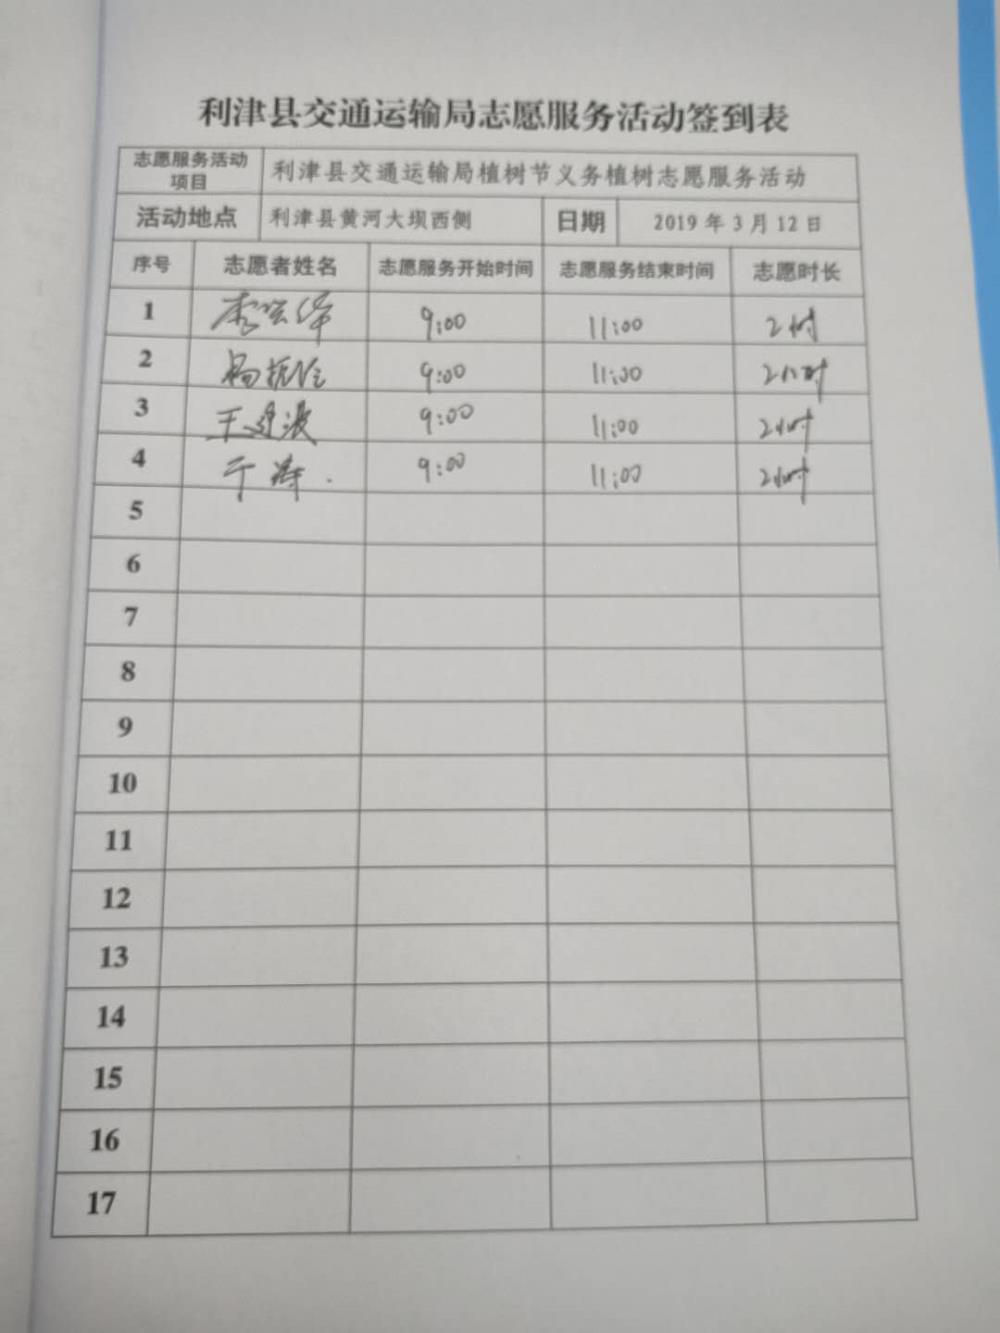 利津县交通运输局志愿服务活动签到表
志愿服务活动项目 利津县交通运输局植树节义务植树志愿服务活动
活动地点 利津县黄河大坝西侧 日期 2019年3月12日
序号 志愿者姓名 志愿服务开始时间 志愿服务结束时间 志愿时长
1 9:00 11:00 2小时
2 9:00 11:00 2小时
3 王建波 9:00 11:00 2小时
4 于涛 9:00 11:00 2小时
5
6
7
8
9
10
11
12
13
14
15
16
17